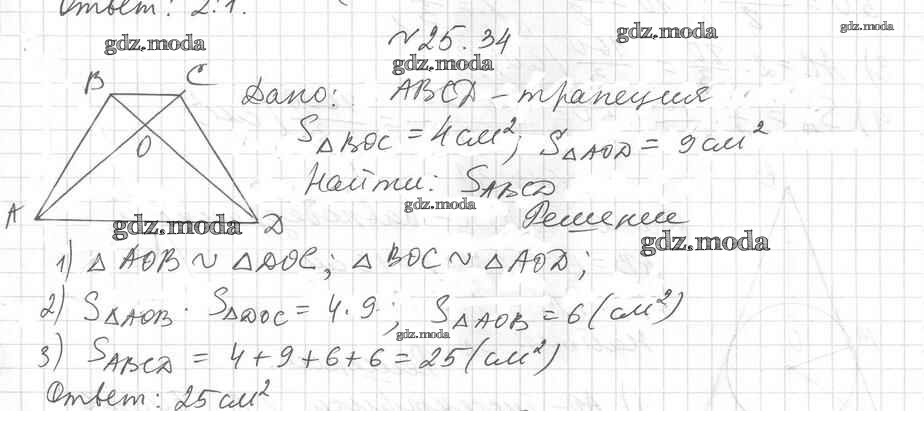 Ответ: 2:1.
gdz.moda
gdz.moda
gdz.moda
№25.34
gdz.moda
B C
O
A D
Дано: ABCD – трапеция
S△BOC = 4 см²; S△AOD = 9 см²
Найти: SABCD
gdz.moda
Решение
gdz.moda
gdz.moda
1) △AOB ~ △DOC; △BOC ~ △AOD;
2) S△AOB · S△DOC = 4·9; S△AOB = 6 (см²)
gdz.moda
3) SABCD = 4+9+6+6 = 25 (см²)
Ответ: 25 см²